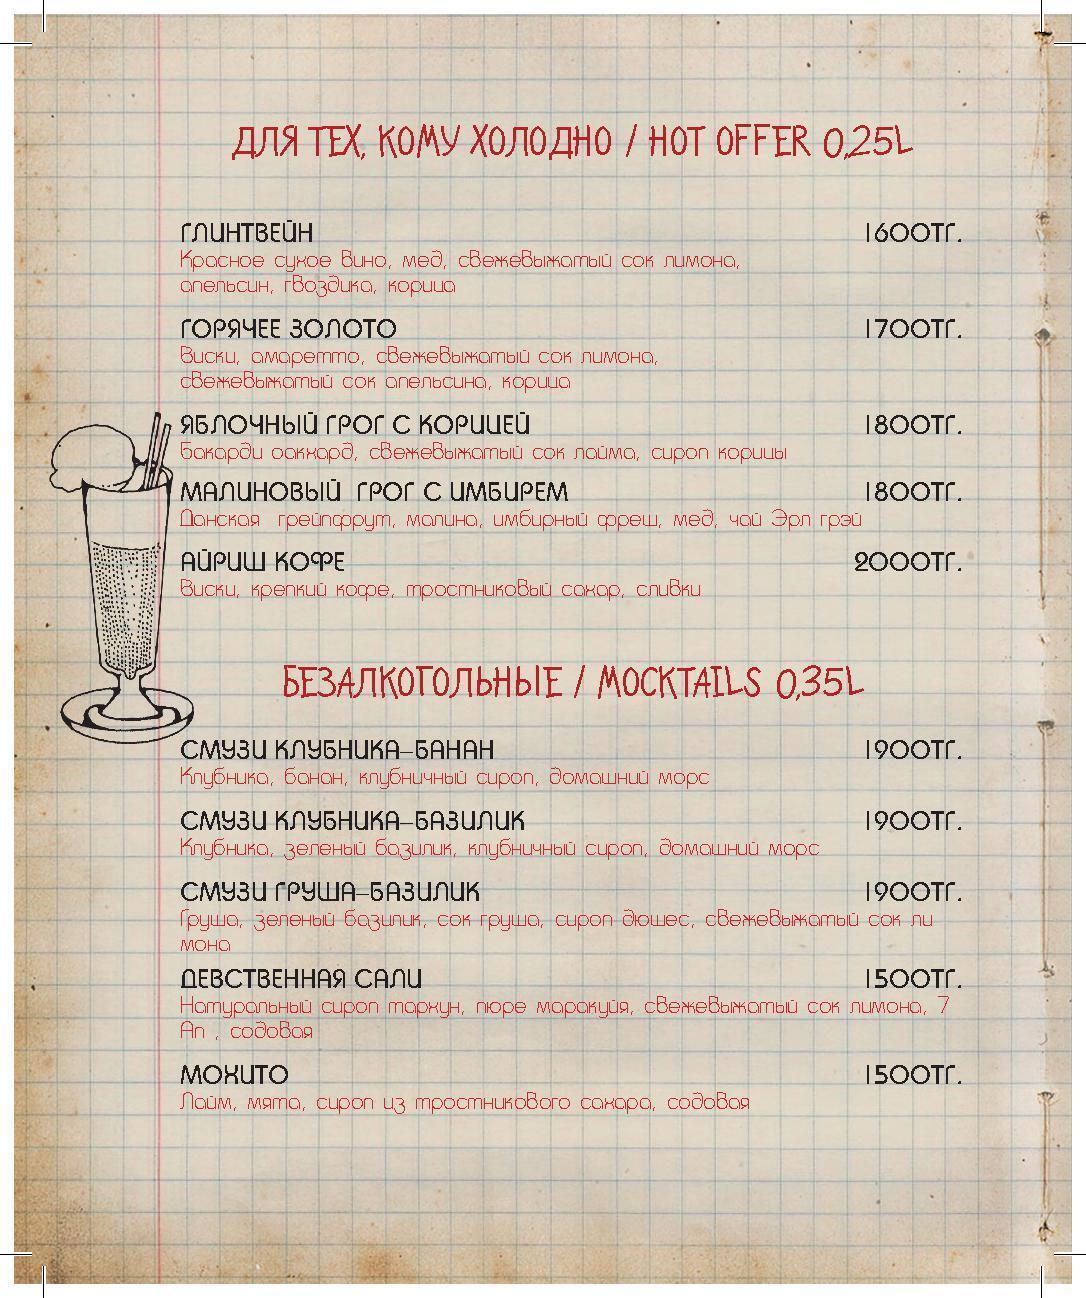 ДЛЯ ТЕХ, КОМУ ХОЛОДНО / HOT OFFER 0,25L
ГЛИНТВЕЙН 1600ТГ.
Красное сухое вино, мед, свежевыжатый сок лимона,
апельсин, гвоздика, корица
ГОРЯЧЕЕ ЗОЛОТО 1700ТГ.
Виски, амаретто, свежевыжатый сок лимона,
свежевыжатый сок апельсина, корица
ЯБЛОЧНЫЙ ГРОГ С КОРИЦЕЙ 1800ТГ.
Бакарди оакхард, свежевыжатый сок лайма, сироп корицы
МАЛИНОВЫЙ ГРОГ С ИМБИРЕМ 1800ТГ.
Данская грейпфрут, малина, имбирный фреш, мед, чай Эрл грэй
АЙРИШ КОФЕ 2000ТГ.
Виски, крепкий кофе, тростниковый сахар, сливки
БЕЗАЛКОГОЛЬНЫЕ / MOCKTAILS 0,35L
СМУЗИ КЛУБНИКА-БАНАН 1900ТГ.
Клубника, банан, клубничный сироп, домашний морс
СМУЗИ КЛУБНИКА-БАЗИЛИК 1900ТГ.
Клубника, зеленый базилик, клубничный сироп, домашний морс
СМУЗИ ГРУША-БАЗИЛИК 1900ТГ.
Груша, зеленый базилик, сок груша, сироп дюшес, свежевыжатый сок ли
мона
ДЕВСТВЕННАЯ САЛИ 1500ТГ.
Натуральный сироп тархун, пюре маракуйя, свежевыжатый сок лимона, 7
Ап , содовая
МОХИТО 1500ТГ.
Лайм, мята, сироп из тростникового сахара, содовая